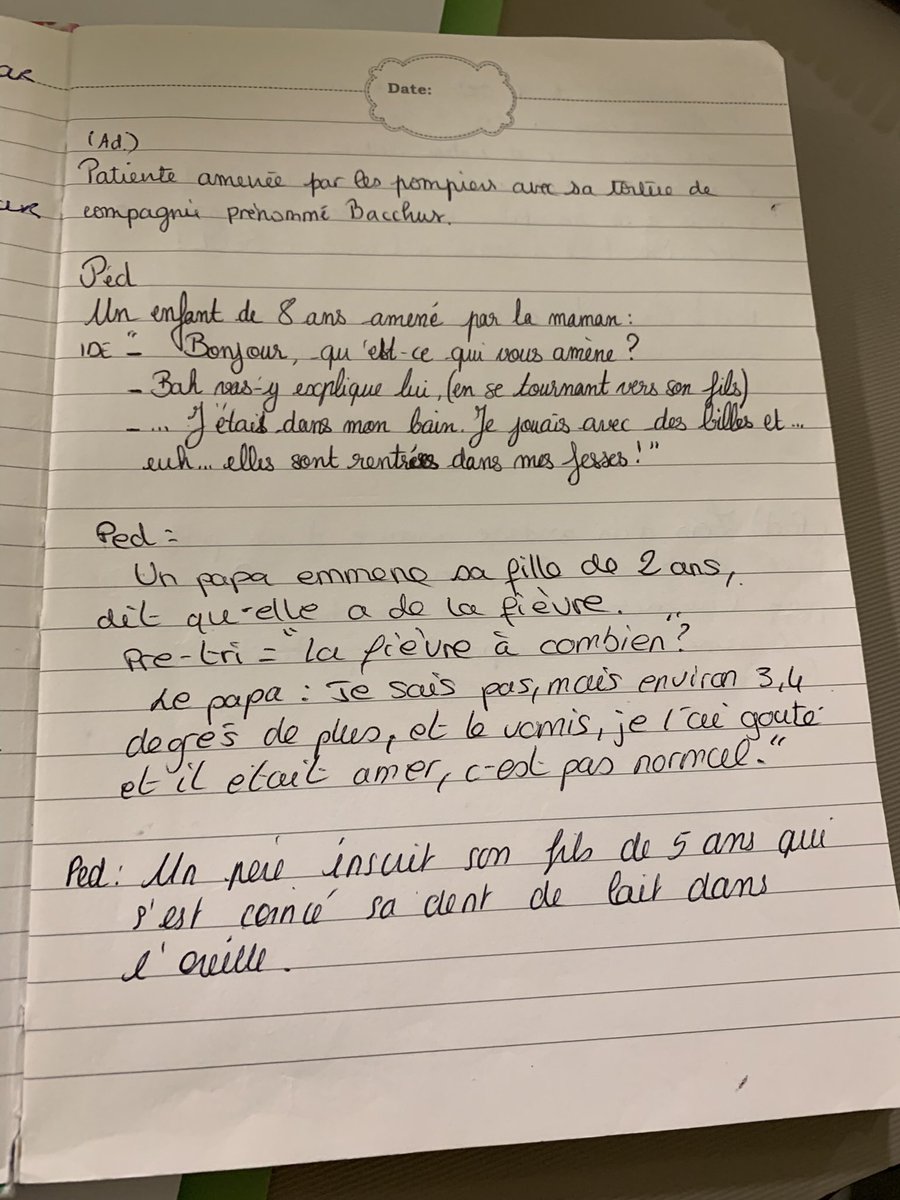 Date:
(Ad.)
Patiente amenée par les pompiers avec sa tortue de
compagnie prénommé Bacchus.
Péd
Un enfant de 8 ans amené par la maman :
IDE "- Bonjour, qu'est-ce qui vous amène ?
- Bah vas-y explique lui, (en se tournant vers son fils)
- ... J'étais dans mon bain. Je jouais avec des billes et ...
euh... elles sont rentrées dans mes fesses ! "
Ped =
Un papa emmene sa fille de 2 ans,
dit qu-elle a de la fièvre.
Pre-tri = "la fièvre à combien" ?
Le papa : Je sais pas, mais environ 3,4
degrés de plus, et le vomis, je l'ai gouté
et il était amer, c-est pas normal."
Ped : Un père inscrit son fils de 5 ans qui
s'est coincé sa dent de lait dans
l'oreille.